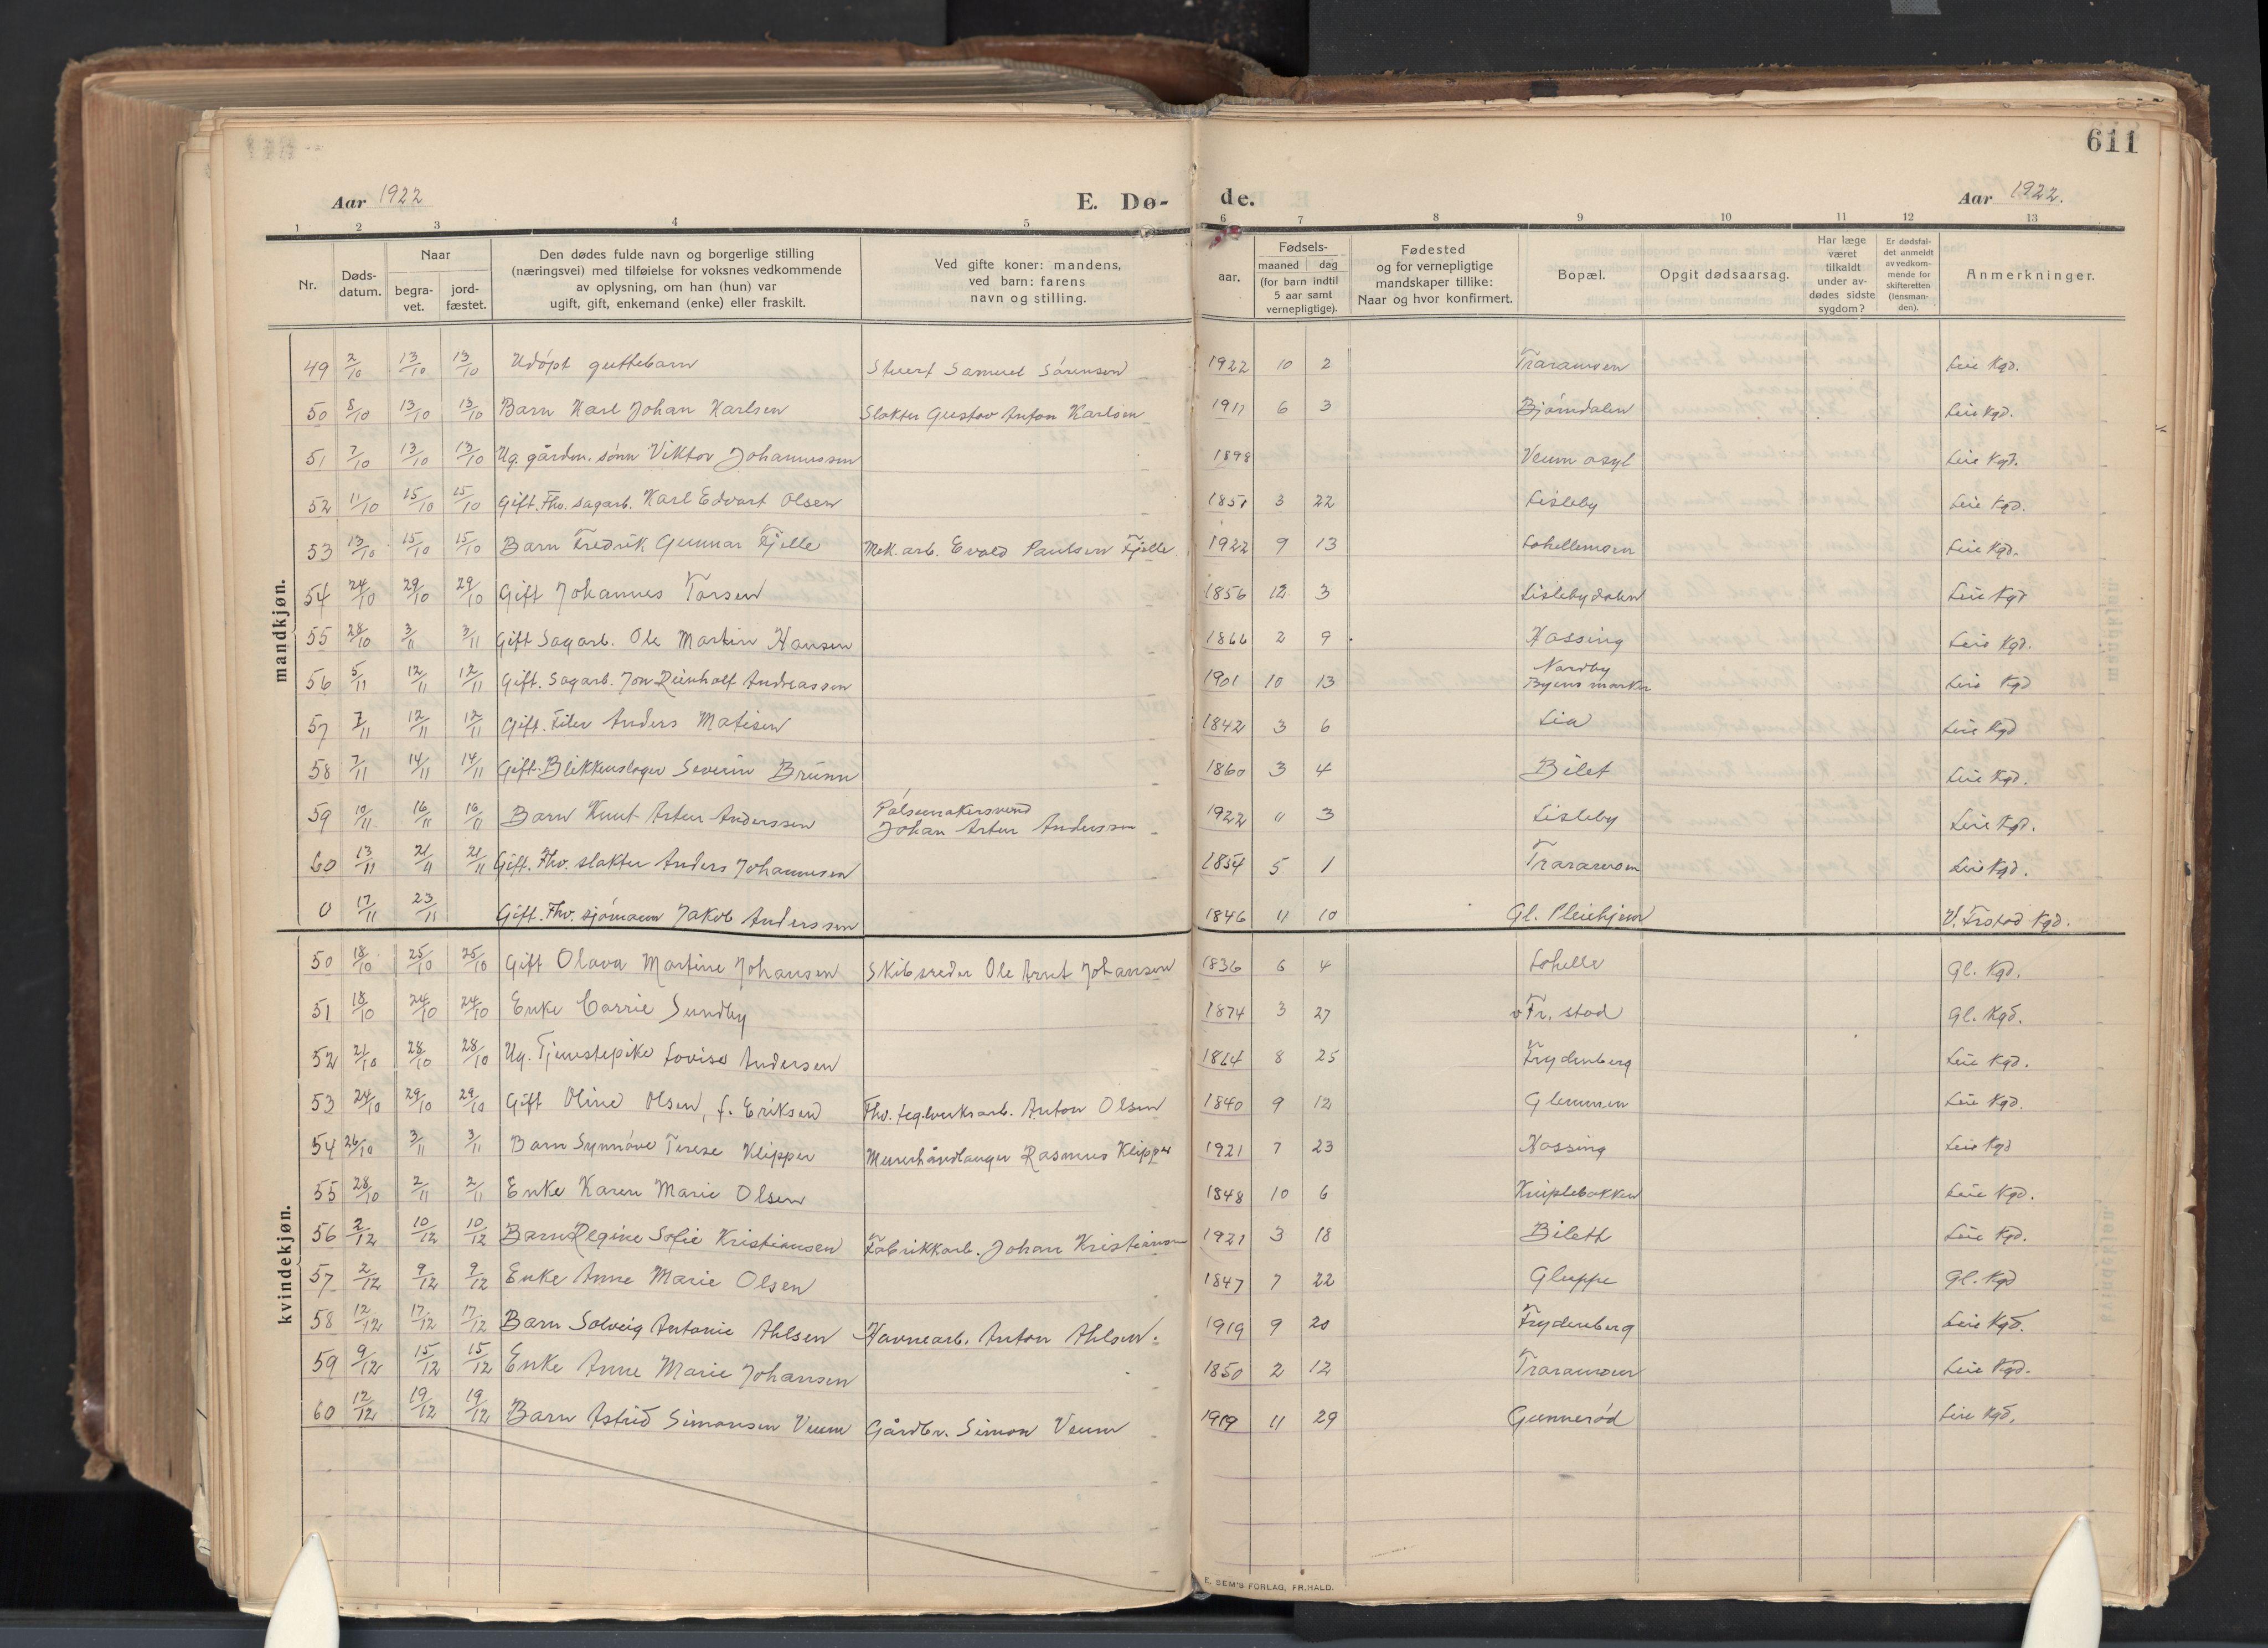 611
Aar 1922
E. Dø-
de.
Aar 1922.
1 2 3 4 5 6 7 8 9 10 11 12 13
Nr.
Døds-
datum.
Naar
begra-
vet.
jord-
fæstet.
Den dødes fulde navn og borgerlige stilling
(næringsvei) med tilføielse for voksnes vedkommende
av oplysning, om han (hun) var
ugift, gift, enkemand (enke) eller fraskilt.
Ved gifte koner: mandens,
ved barn: farens
navn og stilling.
Fødsels-
aar.
maaned dag
(for barn indtil
5 aar samt
vernepligtige).
Fødested
og for vernepligtige
mandskaper tillike:
Naar og hvor konfirmert.
Bopæl.
Opgit dødsaarsag.
Har læge
været
tilkaldt
under av-
dødes sidste
sygdom?
Er dødsfal-
det anmeldt
av vedkom-
mende for
skifteretten
(lensman-
den).
Anmerkninger.
mandkjøn.
49 2/10 13/10 13/10 Udøpt guttebarn Stuert Samuel Sørensen 1922 10 2 Traramoen Leie Kgd.
50 8/10 13/10 13/10 Barn Karl Johan Karlsen Slakter Gustav Anton Karlsen 1911 6 3 Bjørndalen Leie Kgd.
51 7/10 13/10 13/10 Ug. gårdm. sønn Viktor Johannessen 1898 Veum asyl Leie Kgd.
52 11/10 15/10 15/10 Gift. Fhv. sagarb. Karl Edvart Olsen 1851 3 22 Lisleby Leie Kgd.
53 13/10 15/10 15/10 Barn Fredrik Gunnar Fjelle Mek. arb. Evald Paulsen Fjelle 1922 9 13 Lahellemoen Leie Kgd.
54 24/10 29/10 29/10 Gift Johannes Torsen 1856 12 3 Lislebydalen Leie Kgd
55 28/10 3/11 3/11 Gift Sagarb. Ole Martin Hansen 1866 2 9 Hassing Leie Kgd.
56 5/11 12/11 12/11 Gift. Sagarb. Jon Reinholt Andreassen 1901 10 13 Nardby
Byens marker Leie Kgd
57 7/11 12/11 12/11 Gift. Filer Anders Matisen 1842 3 6 Lia Leie Kgd
58 7/11 14/11 14/11 Gift. Blikkenslager Severin Brunn 1860 3 4 Bilet Leie Kgd.
59 10/11 16/11 16/11 Barn Knut Artur Anderssen Pølsemakersvend
Johan Artur Anderssen 1922 11 3 Lisleby Leie Kgd.
60 13/11 21/11 21/11 Gift. Fhv. slakter Anders Johannesen 1854 5 1 Traramoen Leie Kgd.
0 17/11 23/11 Gift. Fhv. sjømann Jakob Anderssen 1846 11 10 Gl. Pleiehjem V. Frstad Kgd.
kvindekjøn.
50 18/10 25/10 25/10 Gift Olava Martine Johansen Skibsreder Ole Arnt Johansen 1836 6 4 Lahelle Gl. Kgd.
51 18/10 24/10 24/10 Enke Carrie Sundby 1874 3 27 v Fr. stad Gl. Kgd.
52 21/10 28/10 28/10 Ug. Tjenstepike Lovise Andersen 1864 8 25 Frydenberg Leie Kgd.
53 24/10 29/10 29/10 Gift Oline Olsen, f. Eriksen Fhv. teglverksarb. Anton Olsen 1840 9 12 Glemmen Leie Kgd.
54 26/10 3/11 3/11 Barn Synnøve Terese Klipper Murerhåndlanger Rasmus Klipper 1921 7 23 Hassing Leie Kgd
55 28/10 2/11 2/11 Enke Karen Marie Olsen 1848 10 6 Kniplebakken Leie Kgd.
56 2/12 10/12 10/12 Barn Regine Sofie Kristiansen Fabrikkarb. Johan Kristiansen 1921 3 18 Bilett Leie Kgd.
57 2/12 9/12 9/12 Enke Anne Marie Olsen 1847 7 22 Gluppe Gl. Kgd
58 12/12 17/12 17/12 Barn Solveig Antonie Ahlsen Havnearb. Anton Ahlsen. 1919 9 20 Frydenberg Leie Kgd.
59 9/12 15/12 15/12 Enke Anne Marie Johansen 1850 2 12 Traramoen Leie Kgd.
60 12/12 19/12 19/12 Barn Astrid Simonsen Veum Gårdbr. Simon Veum 1919 11 29 Gunnerød Leie Kgd.
E. SEM'S FORLAG, FR.HALD.